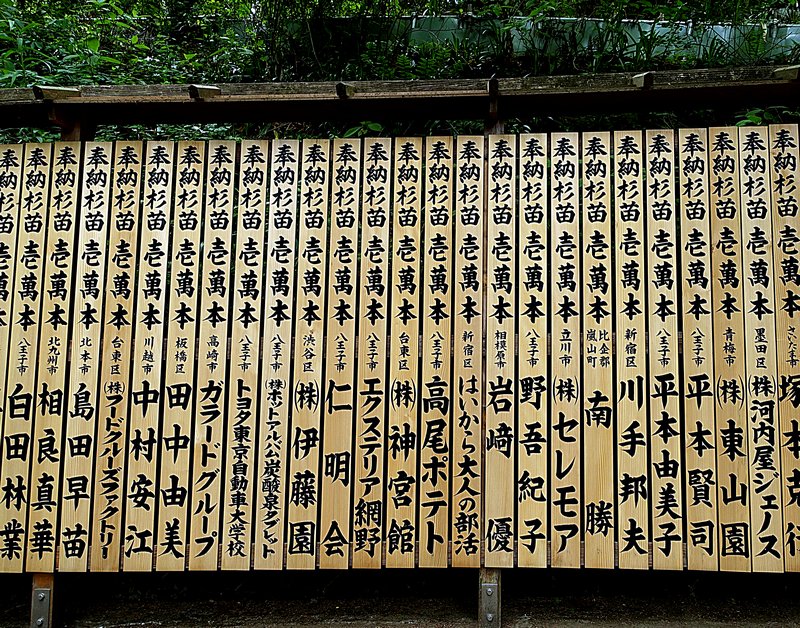 奉納杉苗壱萬本 さいたま市 塚本克行
奉納杉苗壱萬本 墨田区 ㈱河内屋ジェノス
奉納杉苗壱萬本 青梅市 ㈱東山園
奉納杉苗壱萬本 八王子市 平本賢司
奉納杉苗壱萬本 八王子市 平本由美子
奉納杉苗壱萬本 新宿区 川手邦夫
奉納杉苗壱萬本 比企郡嵐山町 南勝
奉納杉苗壱萬本 立川市 ㈱セレモア
奉納杉苗壱萬本 八王子市 野吾紀子
奉納杉苗壱萬本 相模原市 岩﨑優
奉納杉苗壱萬本 新宿区 はいから大人の部活
奉納杉苗壱萬本 八王子市 高尾ポテト
奉納杉苗壱萬本 台東区 ㈱神宮館
奉納杉苗壱萬本 八王子市 エクステリア網野
奉納杉苗壱萬本 八王子市 仁明会
奉納杉苗壱萬本 渋谷区 ㈱伊藤園
奉納杉苗壱萬本 八王子市 ㈱ホットアルバム炭酸泉タブレット
奉納杉苗壱萬本 八王子市 トヨタ東京自動車大学校
奉納杉苗壱萬本 高崎市 ガラードグループ
奉納杉苗壱萬本 板橋区 田中由美
奉納杉苗壱萬本 川越市 中村安江
奉納杉苗壱萬本 台東区 ㈱フードクルーズファクトリー
奉納杉苗壱萬本 北本市 島田早苗
奉納杉苗壱萬本 北九州市 相良真華
奉納杉苗壱萬本 八王子市 白田林業
奉納杉苗壱萬本